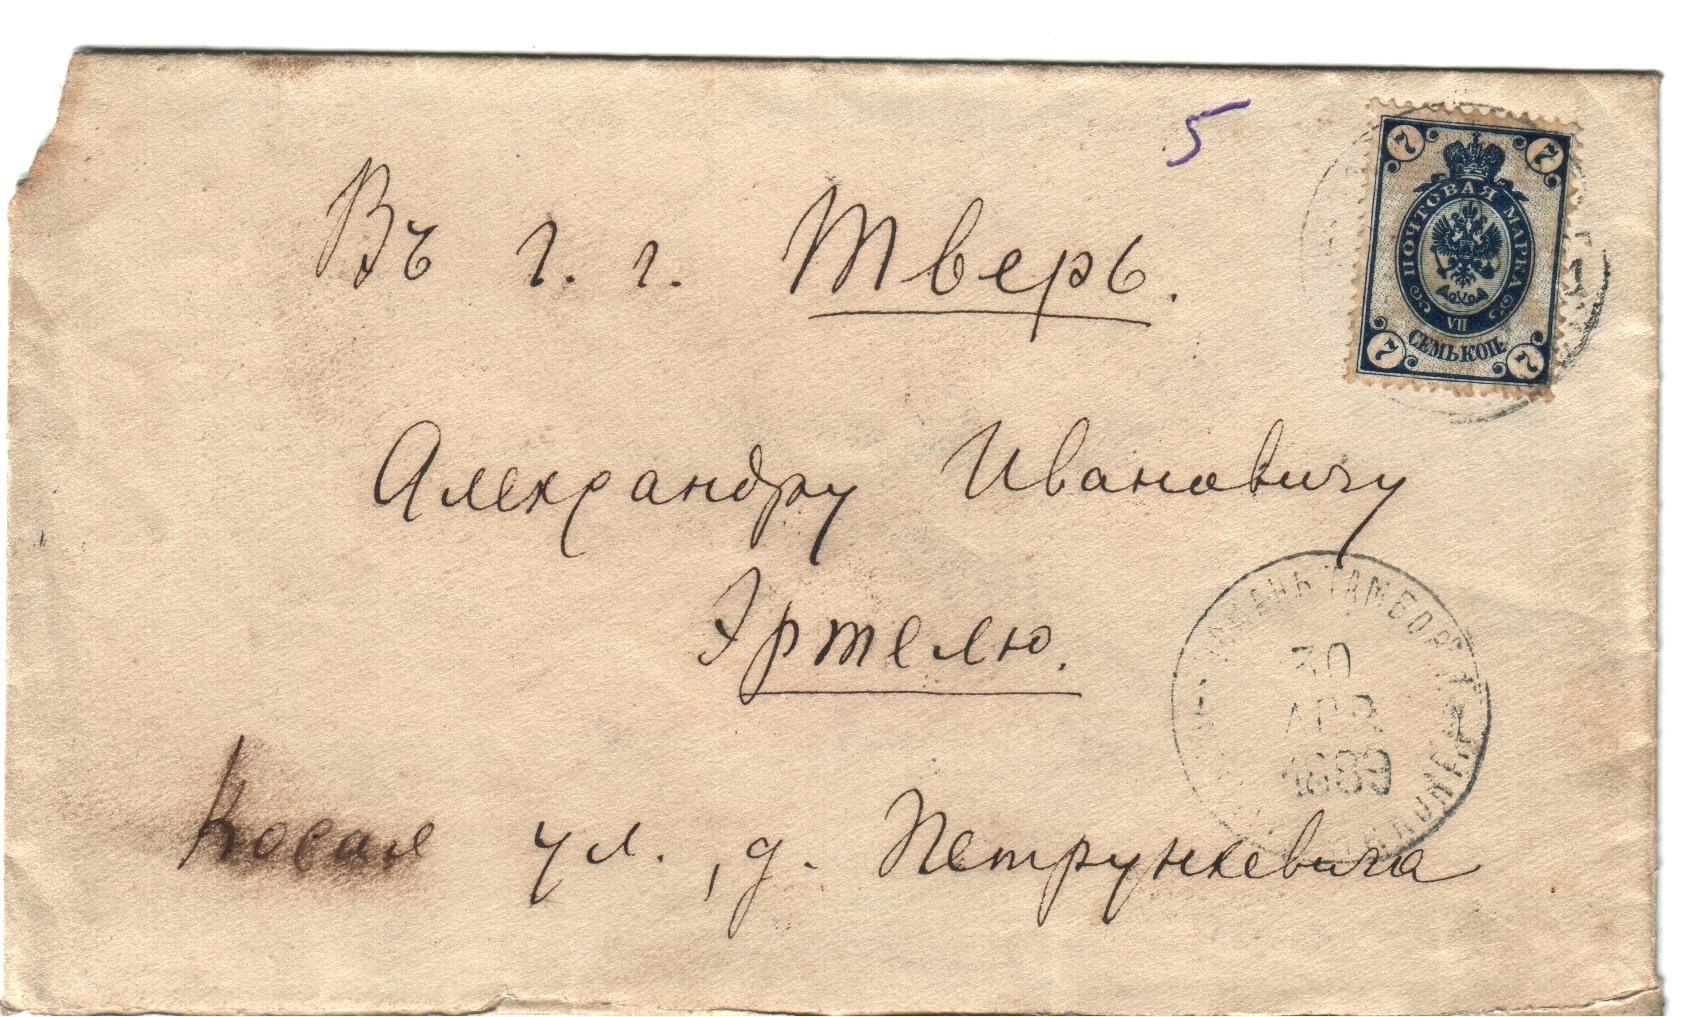 5
7 7
ПОЧТОВАЯ МАРКА
VII
СЕМЬ КОП.
7 7
Въ г. г. Тверь.
Александру Ивановичу
Эртелю.
ТАМБОВ
30
АПР
1889
Косая ул., д. Петрункевича